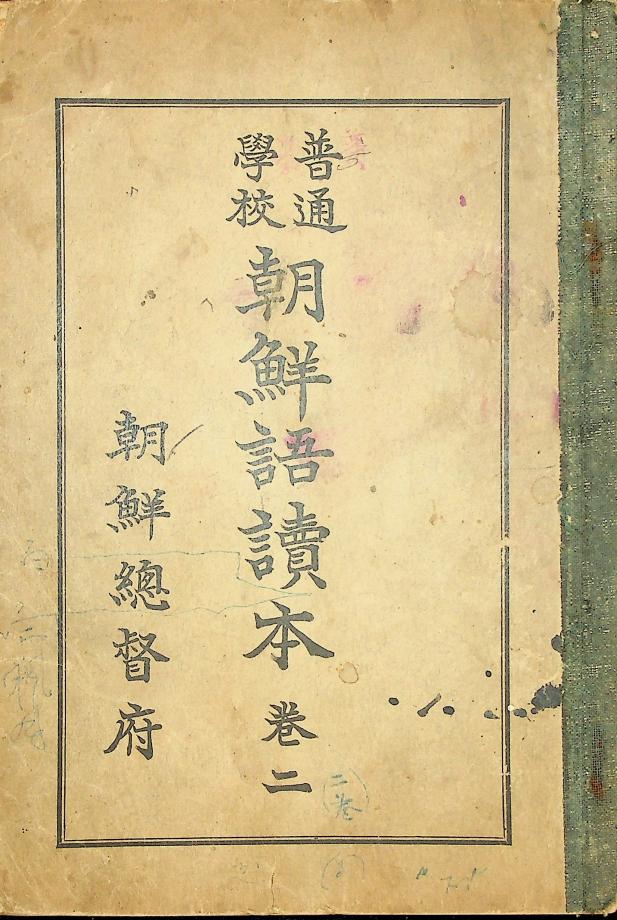 普通
學校
朝鮮語讀本 卷二
朝鮮總督府
二巻